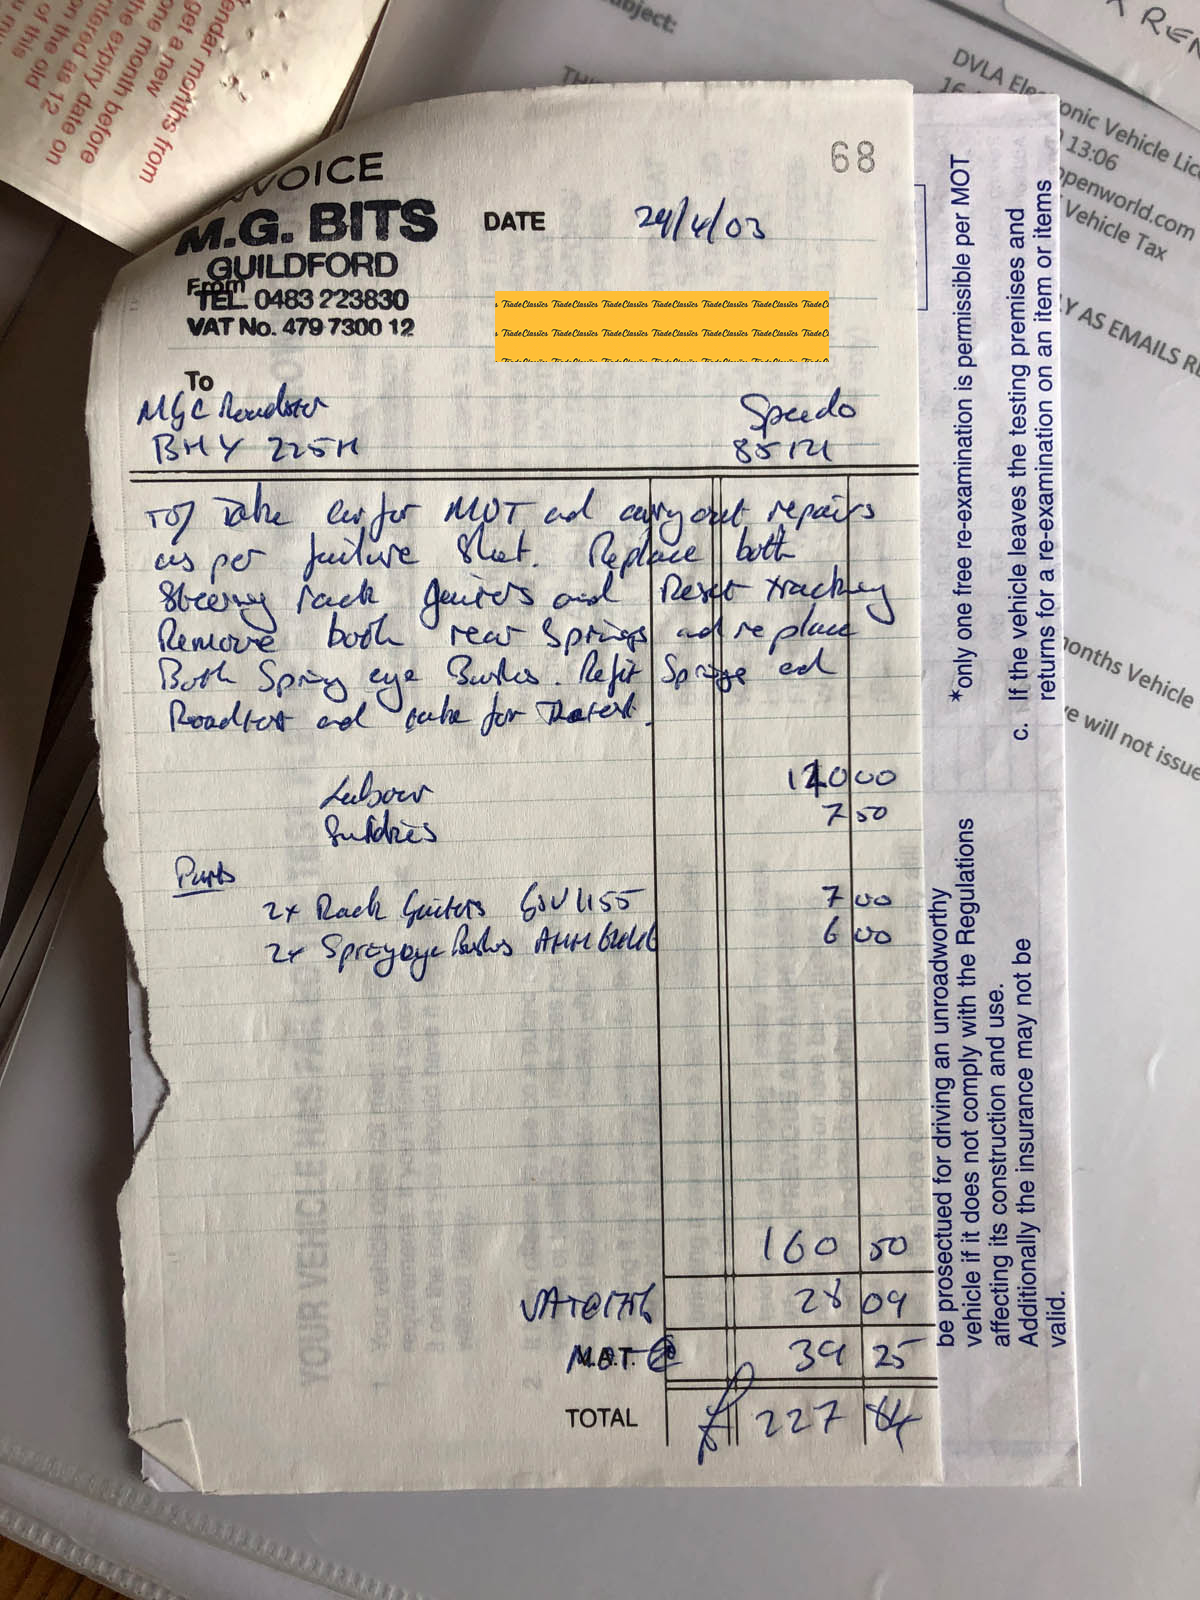 endar months from
get a new
one month before
the expiry date on
ntered as 12
on the old
of this
u mu
bject:
DVLA Electronic Vehicle Lice
13:06
openworld.com
Vehicle Tax
LY AS EMAILS RE
months Vehicle
we will not issue
REN
VOICE
68
M.G. BITS
GUILDFORD
From
TEL. 0483 223830
VAT No. 479 7300 12
DATE 29/4/03
TradeClassics TradeClassics TradeClassics TradeClassics TradeClassics TradeClassics TradeC
TradeClassics TradeClassics TradeClassics TradeClassics TradeClassics TradeClassics TradeC
TradeClassics TradeClassics TradeClassics TradeClassics TradeClassics TradeClassics TradeC
To
MGC Roadster Speedo
BHY 225H 85121
To/ Take car for MOT and carry out repairs
as per failure sheet. Replace both
Steering rack gaiters and Reset tracking
Remove both rear springs and replace
Both Spring eye Bushes. Refit Springs and
Roadtest and take for Retest.
Labour 140 00
Sundries 7 50
Parts
2x Rack Gaiters GSV1155 7 00
2x Spring eye Bushes AHH 6 00
160 50
VAT@17½% 28 09
M.O.T. @ 39 25
TOTAL £ 227 84
*only one free re-examination is permissible per MOT
c. If the vehicle leaves the testing premises and
returns for a re-examination on an item or items
be prosectued for driving an unroadworthy
vehicle if it does not comply with the Regulations
affecting its construction and use.
Additionally the insurance may not be
valid.